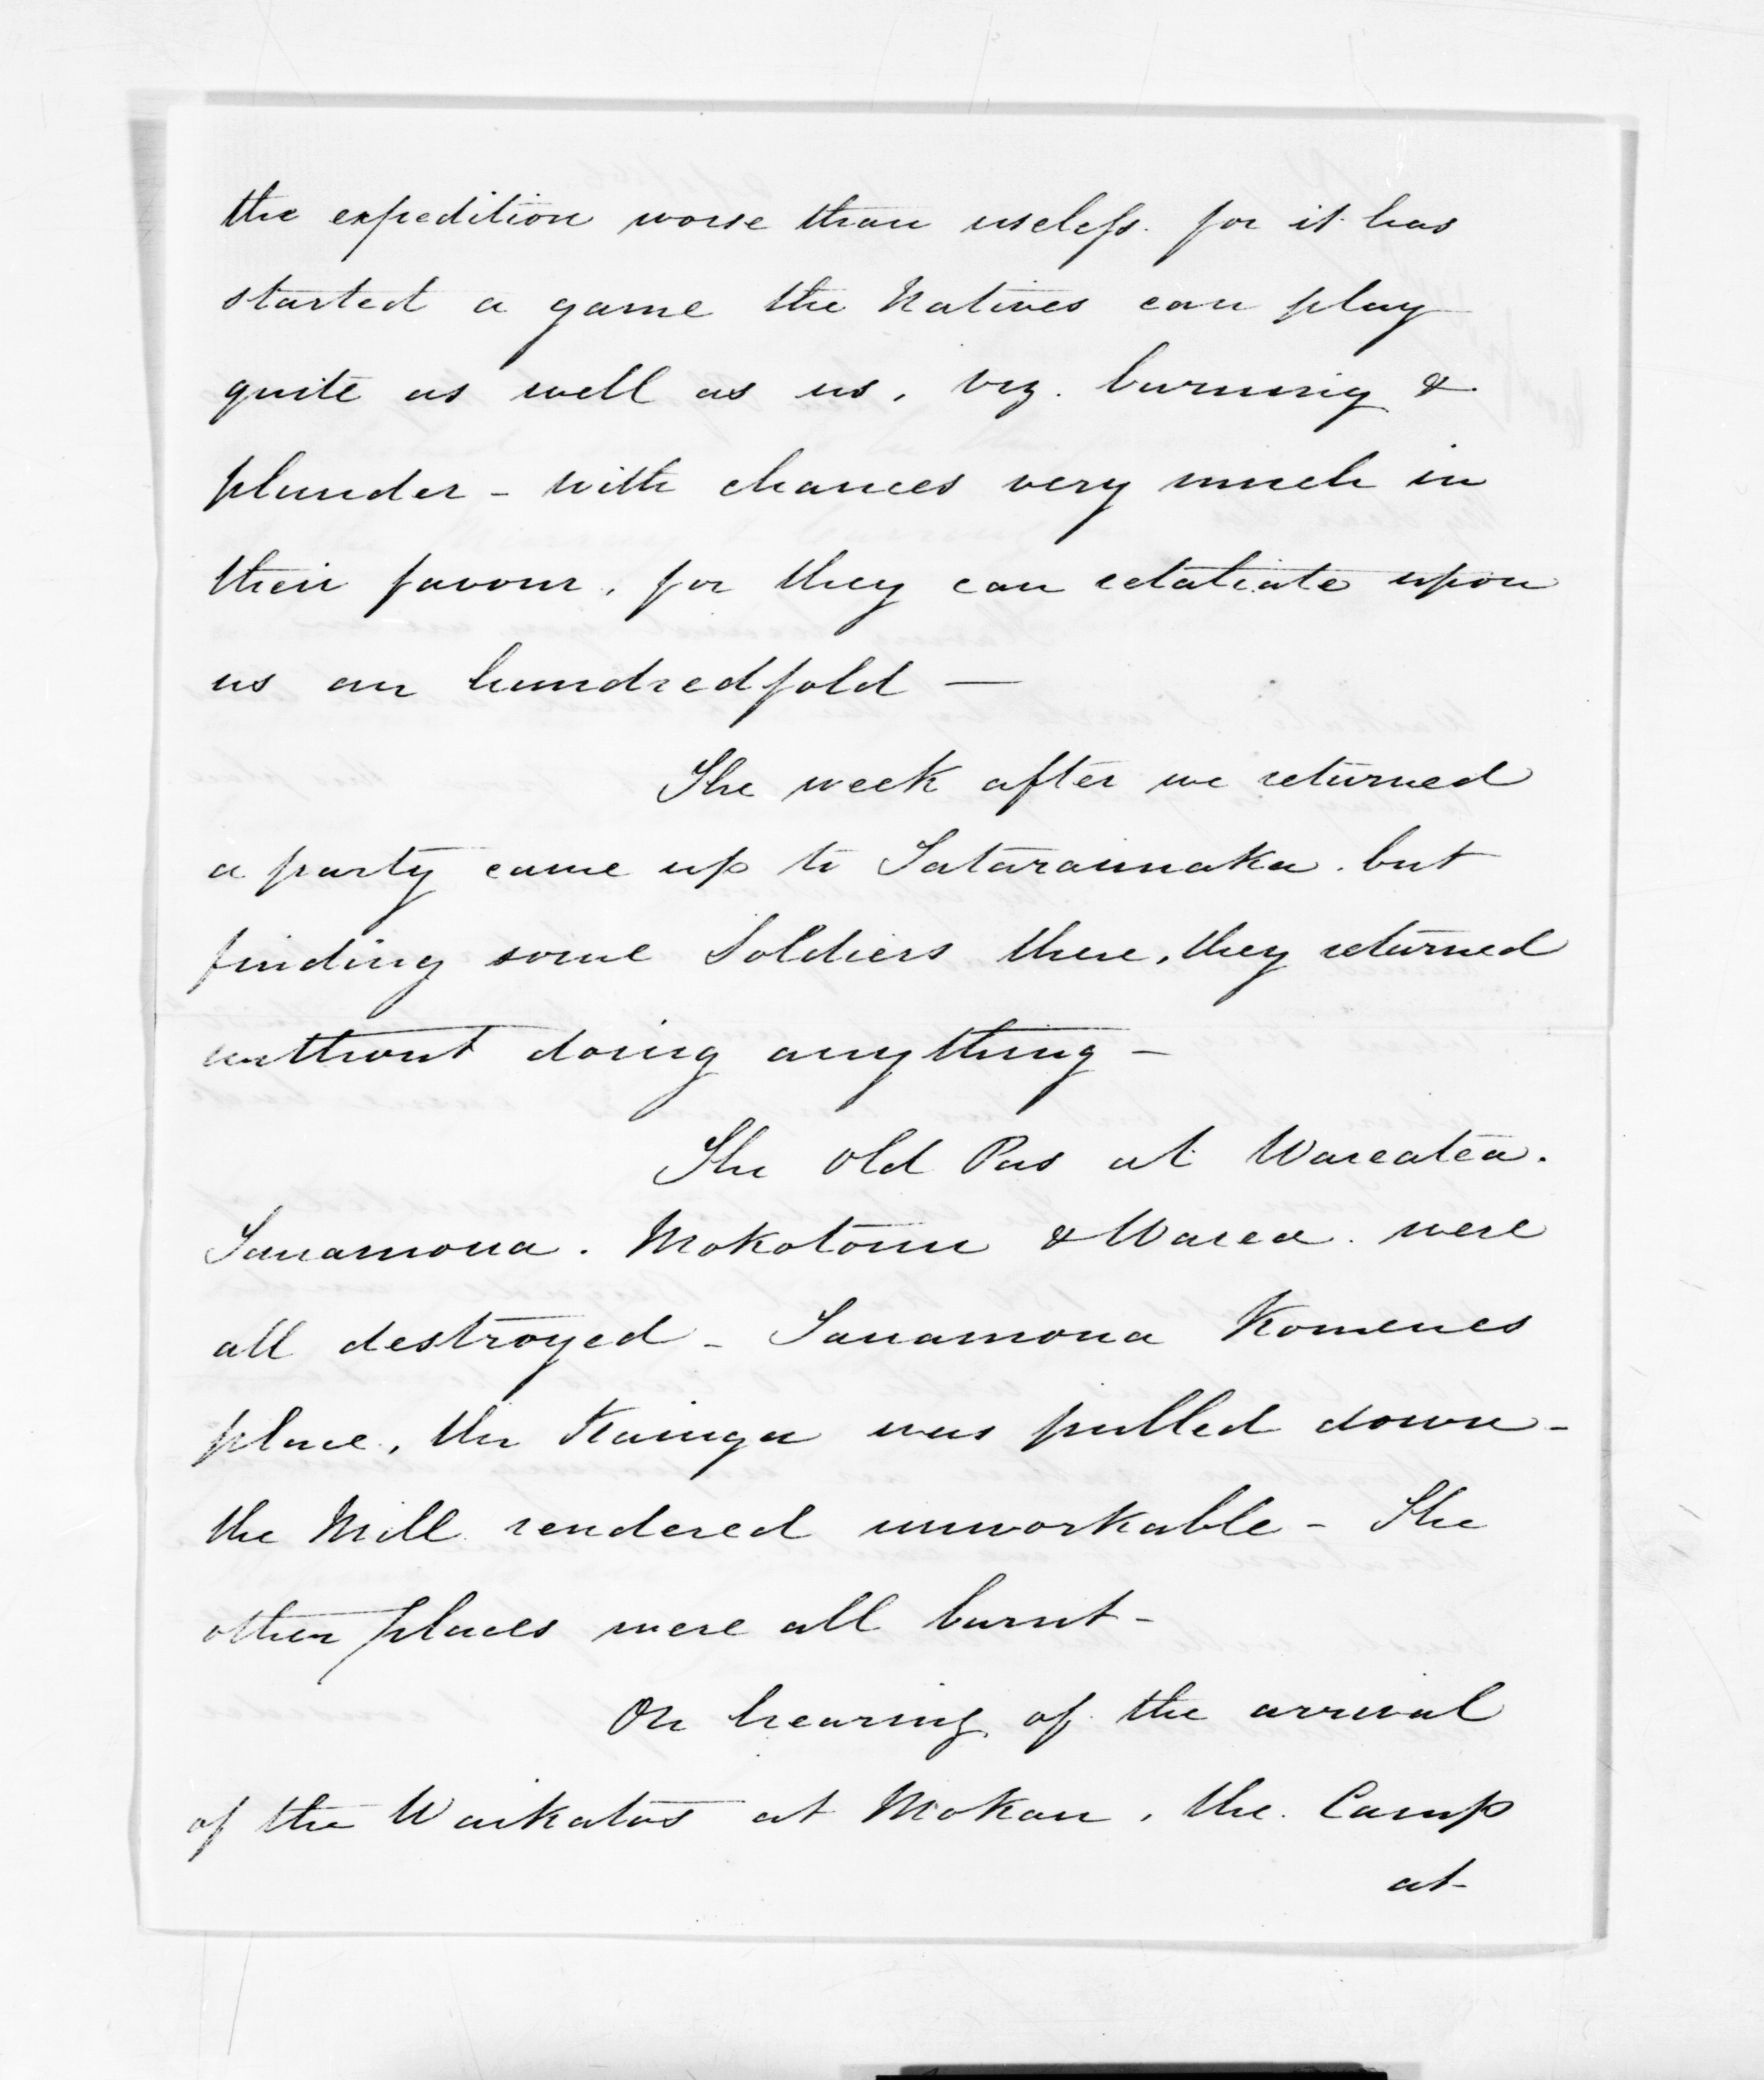 the expedition worse than useless. for it has
started a game the Natives can play
quite as well as us, viz. burning &
plunder - with chances very much in
their favour, for they can retaliate upon
us an hundredfold —
The week after we returned
a party came up to Tataraimaka. but
finding some Soldiers there, they returned
without doing anything -
The Old Pas at Wareatea.
Tanamona. Mokotonu & Warea. were
all destroyed - Tanamona Komenes
place, the Kainga was pulled down -
the Mill rendered unworkable - The
other places were all burnt -
On hearing of the arrival
of the Waikatos at Mokau, the Camp
at